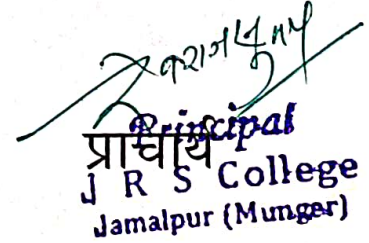 Principal
प्राचार्य
J R S College
Jamalpur (Munger)